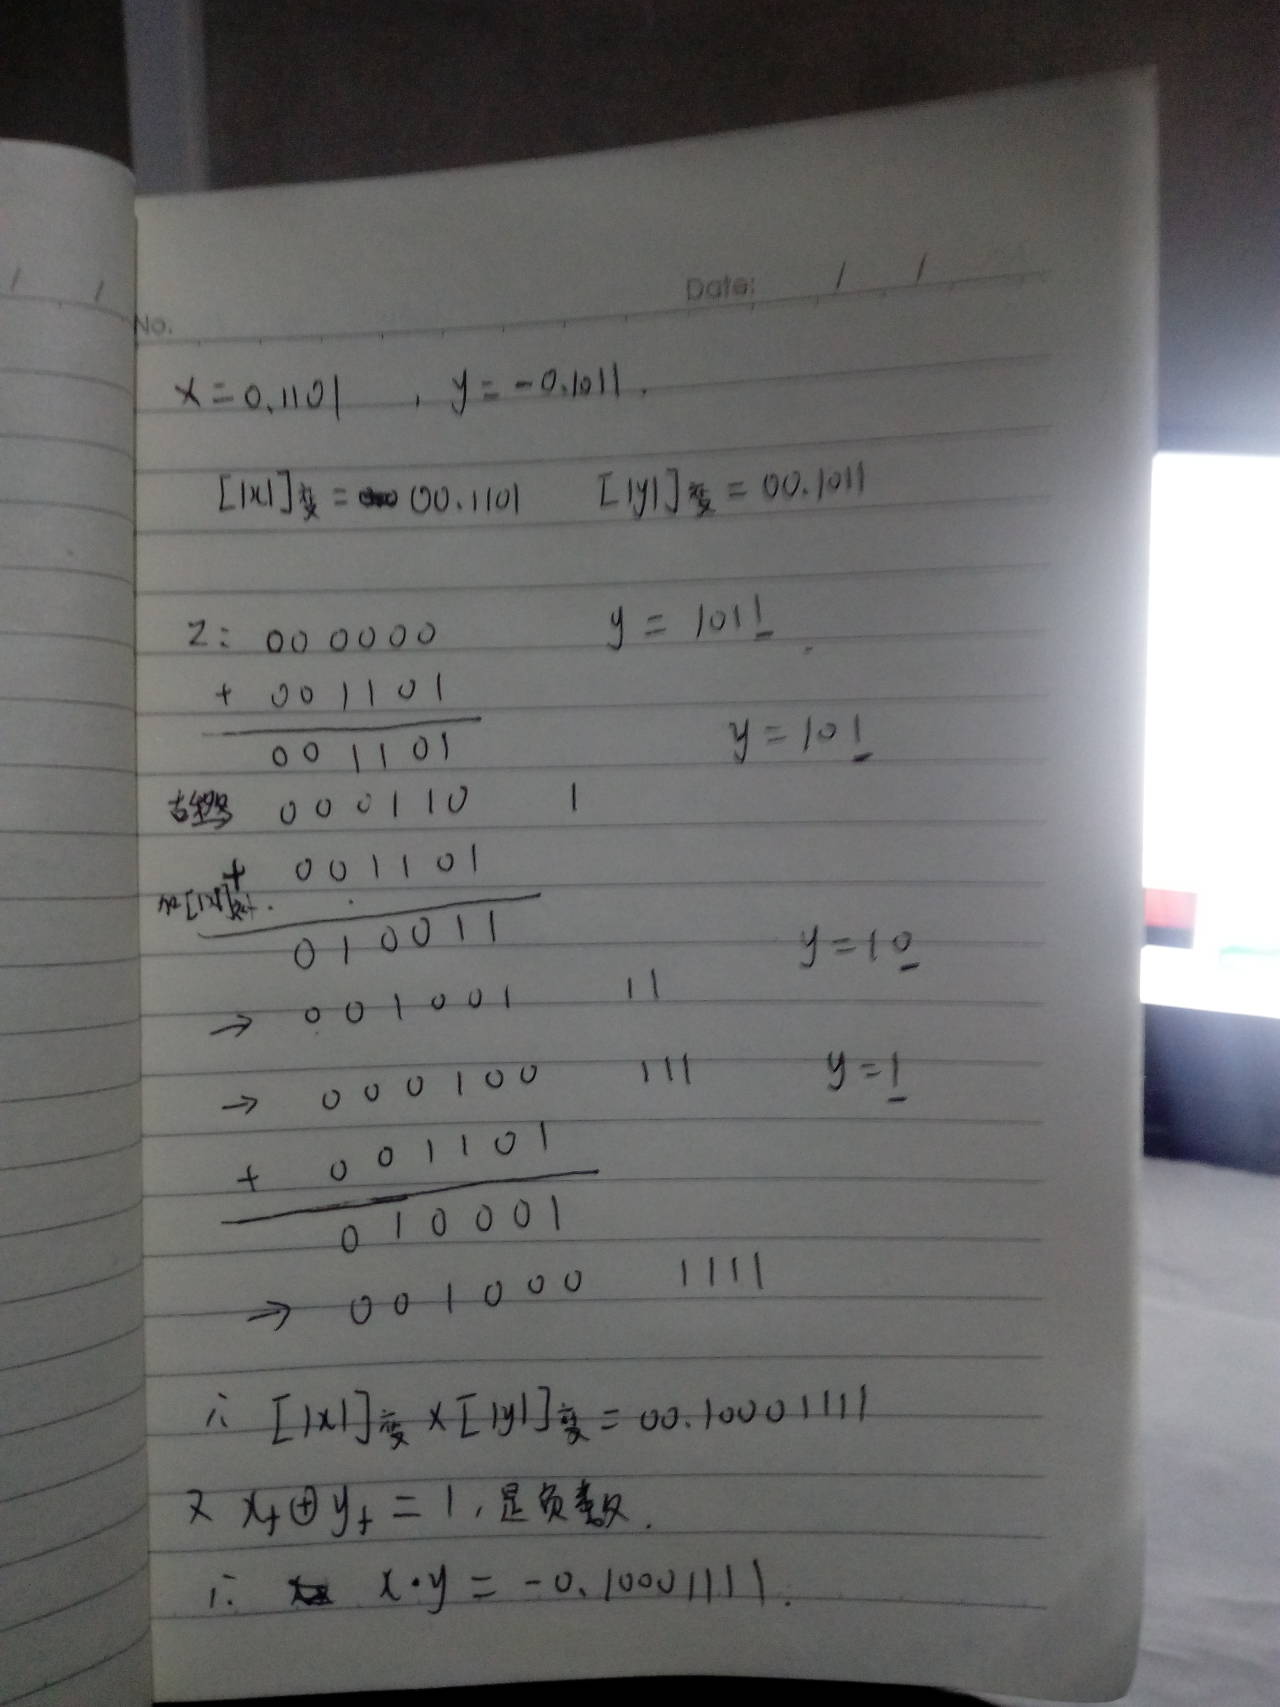 No.
Date: / /
x = 0.1101 , y = -0.1011.
[|x|]变 = 00.1101 [|y|]变 = 00.1011
Z: 000000 y = 1011
+ 001101
001101 y = 101
右移 000110 1
+ 001101
加[|x|]变
010011 y = 10
→ 001001 11
→ 000100 111 y = 1
+ 001101
010001
→ 001000 1111
∴ [|x|]变 × [|y|]变 = 00.10001111
又 xf ⊕ yf = 1, 是负数.
∴ x·y = -0.10001111.